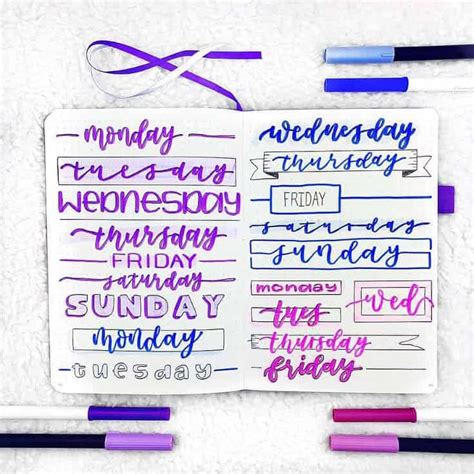 monday
tuesday
WEDNESDAY
thursday
FRIDAY
saturday
SUNDAY
monday
tuesday
wednesday
thursday
FRIDAY
saturday
sunday
monday
tues
wed
thursday
friday